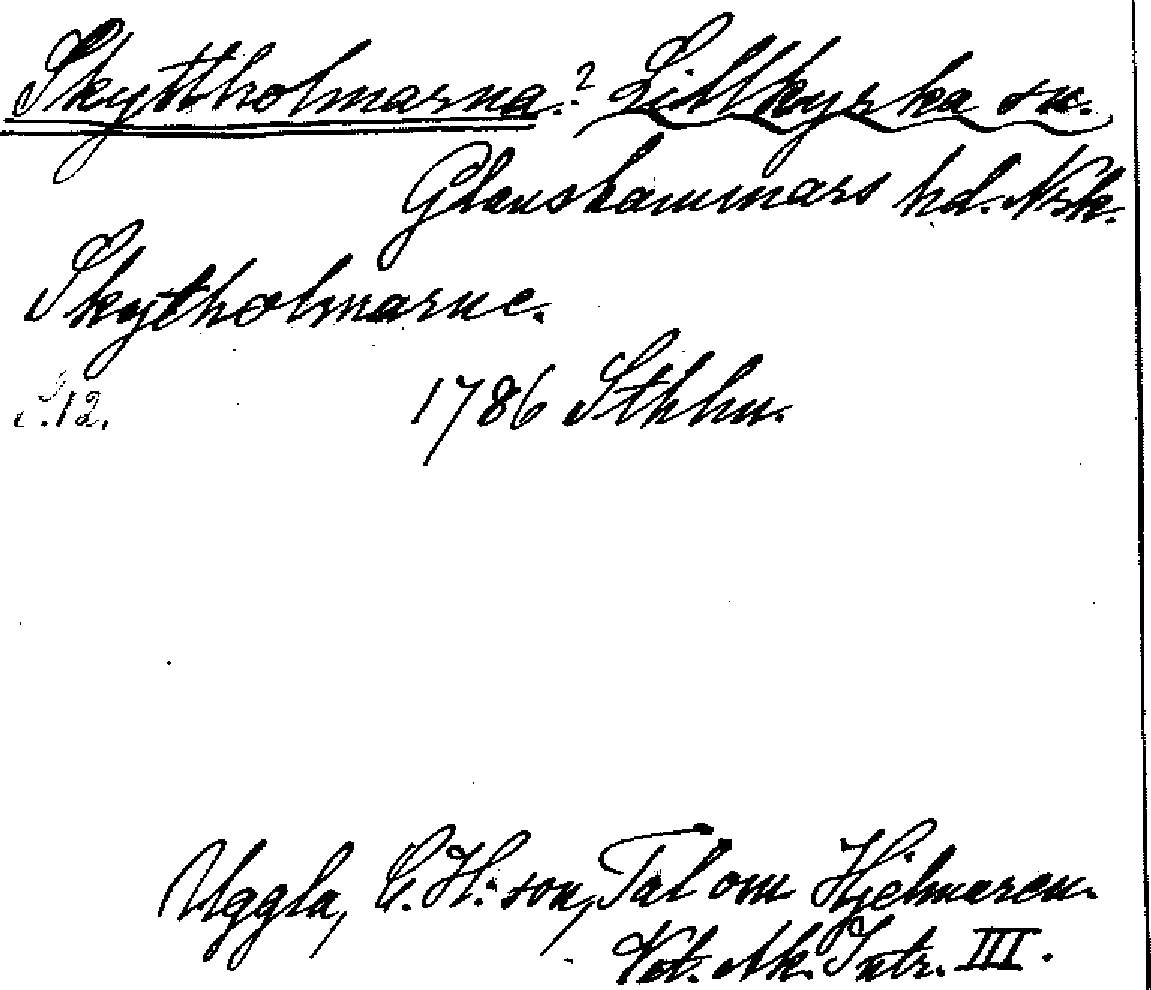 Skyttholmarna? Lillkyrka sn.
Glanshammars hd. Nrk.
Skytholmarne.
S.12. 1786 Sthlm.
Uggla, C. H:son, Tal om Hjelmaren.
Vet. Ak. Intr. III.